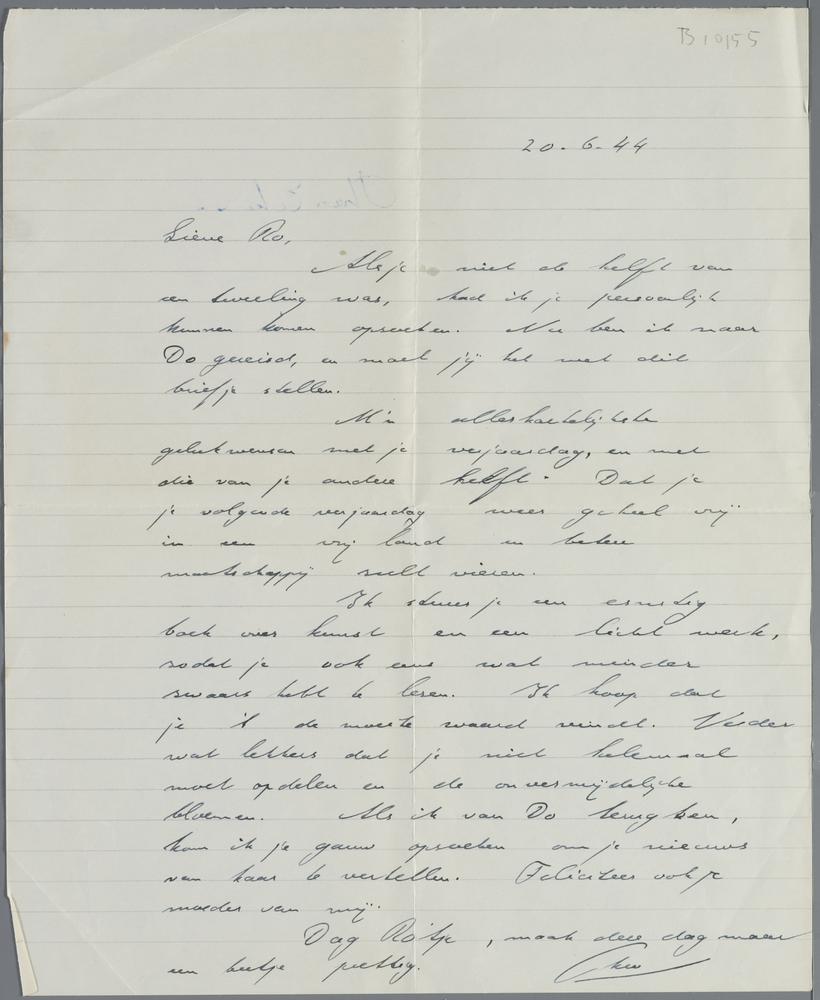 B 1055
20-6-44
Lieve Ro,
Als je niet de helft van
een tweeling was, had ik je persoonlijk
kunnen komen opzoeken. Nu ben ik naar
Do gereisd, en moet jij het met dit
briefje stellen.
M'n allerhartelijkste
gelukwensen met je verjaardag, en met
die van je andere helft. Dat je
je volgende verjaardag weer geheel vrij
in een vrij land en betere
maatschappij zult vieren.
Ik stuur je een ernstig
boek over kunst en een licht werk,
zodat je ook eens wat minder
zwaars hebt te lezen. Ik hoop dat
je 't de moeite waard vindt. Verder
wat lekkers dat je niet helemaal
moet opdelen en de onvermijdelijke
bloemen. Als ik van Do terug ben,
kom ik je gauw opzoeken om je nieuws
van haar te vertellen. Feliciteer ook je
moeder van mij.
Dag Rotje, maak deze dag maar
een beetje prettig.